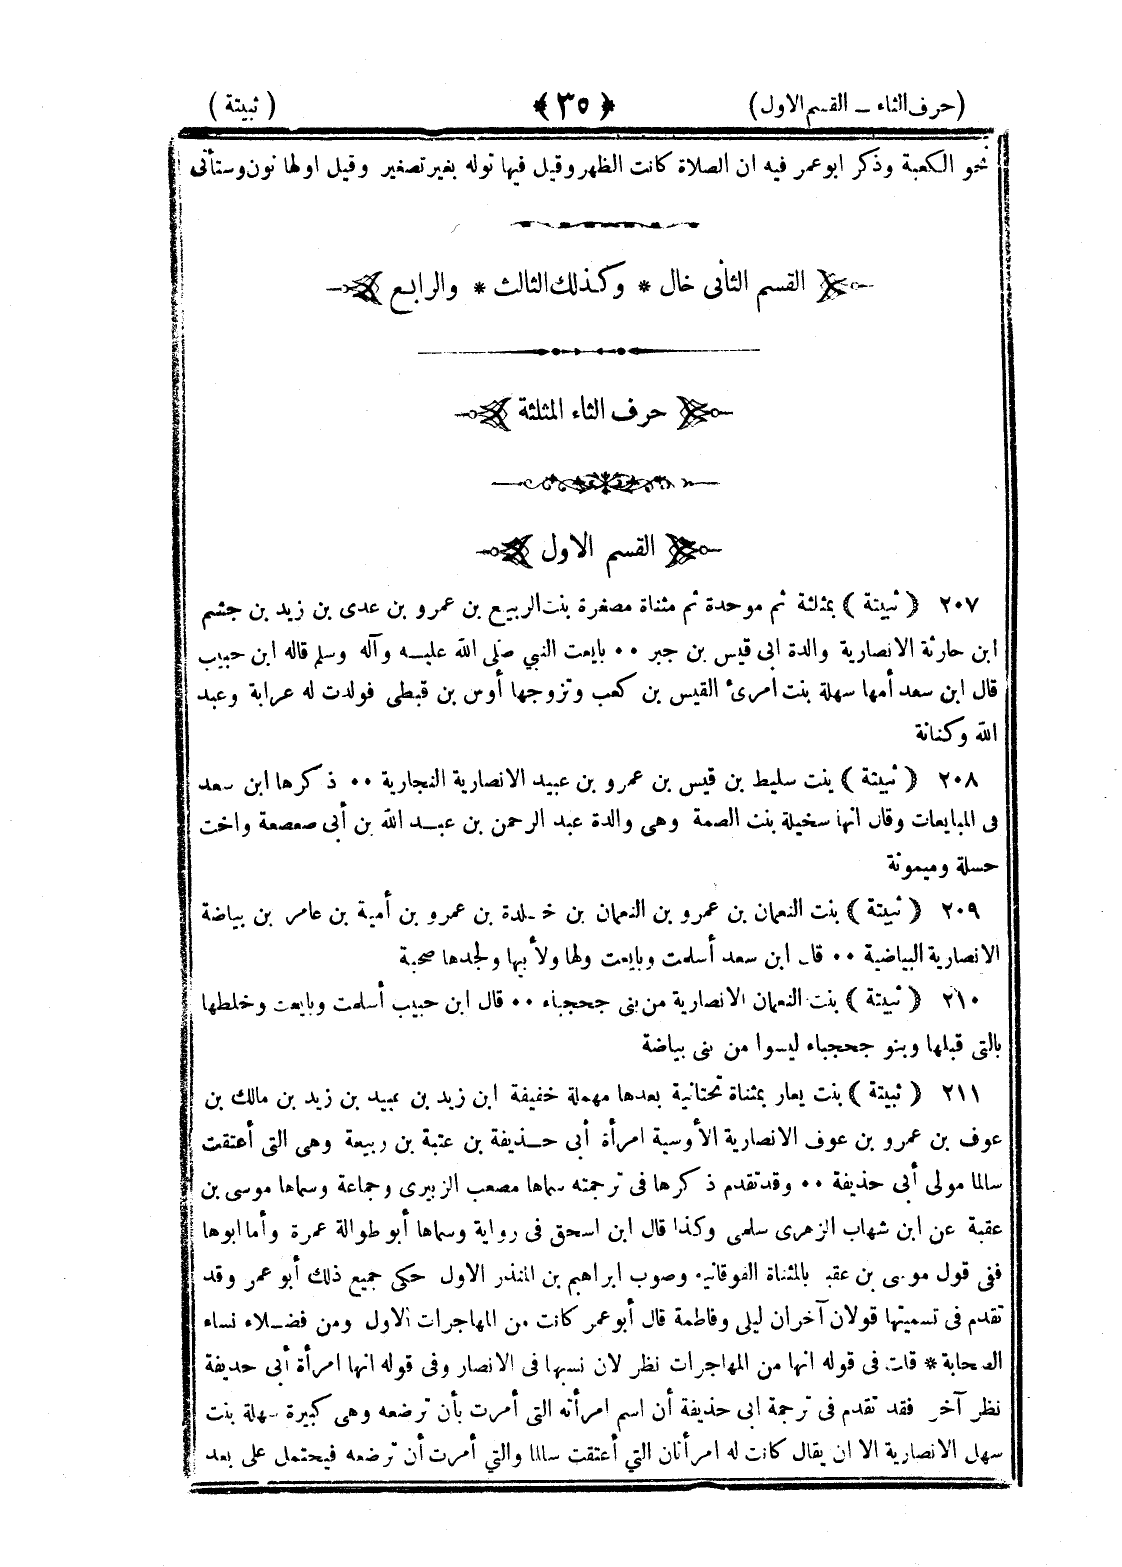 (حرف الثاء ــ القسم الاول)
﴿ ٣٥ ﴾
( ثبيتة )
نحو الكعبة وذكر ابو عمر فيه ان الصلاة كانت الظهر وقيل فيها توله بغير تصغير وقيل اولها نون وستأتى
القسم الثانى خال * وكذلك الثالث * والرابع
حرف الثاء المثلثة
القسم الاول
٢٠٧ ( ثبيتة ) بمثلثة ثم موحدة ثم مثناة مصغرة بنت الربيع بن عمرو بن عدى بن زيد بن جشم
ابن حارثة الانصارية والدة ابى قيس بن جبر ٠٠ بايعت النبي صلى الله عليه وآله وسلم قاله ابن حبيب
قال ابن سعد أمها سهلة بنت امرئ القيس بن كعب وتزوجها أوس بن قيظى فولدت له عرابة وعبد
الله وكنانة
٢٠٨ ( ثبيتة ) بنت سليط بن قيس بن عمرو بن عبيد الانصارية النجارية ٠٠ ذكرها ابن سعد
فى المبايعات وقال انها سخيلة بنت الصمة وهى والدة عبد الرحمن بن عبد الله بن أبى صعصعة واخت
حسلة وميمونة
٢٠٩ ( ثبيتة ) بنت النعمان بن عمرو بن النعمان بن خلدة بن عمرو بن أمية بن عامر بن بياضة
الانصارية البياضية ٠٠ قال ابن سعد أسلمت وبايعت ولها ولأبيها ولجدها صحبة
٢١٠ ( ثبيتة ) بنت النعمان الانصارية من بنى جحجباء ٠٠ قال ابن حبيب أسلمت وبايعت وخلطها
بالتى قبلها وبنو جحجباء ليسوا من بنى بياضة
٢١١ ( ثبيتة ) بنت يعار بمثناة تحتانية بعدها مهملة خفيفة ابن زيد بن عبيد بن زيد بن مالك بن
عوف بن عمرو بن عوف الانصارية الأوسية امرأة أبى حذيفة بن عتبة بن ربيعة وهى التى أعتقت
سالما مولى أبى حذيفة ٠٠ وقد تقدم ذكرها فى ترجمته سماها مصعب الزبيرى وجماعة وسماها موسى بن
عقبة عن ابن شهاب الزهرى سلمى وكذا قال ابن اسحق فى رواية وسماها أبو طوالة عمرة وأما ابوها
ففى قول موسى بن عقبة بالمثناة الفوقانية وصوب ابراهيم بن المنذر الاول حكى جميع ذلك أبو عمر وقد
تقدم فى تسميتها قولان آخران ليلى وفاطمة قال أبو عمر كانت من المهاجرات الاول ومن فضلاء نساء
الصحابة * قلت فى قوله انها من المهاجرات نظر لان نسبها فى الانصار وفى قوله انها امرأة أبى حذيفة
نظر آخر فقد تقدم فى ترجمة ابى حذيفة أن اسم امرأته التى أمرت بأن ترضعه وهى كبيرة سهلة بنت
سهل الانصارية الا ان يقال كانت له امرأتان التي أعتقت سالما والتي أمرت أن ترضعه فيحتمل على بعد